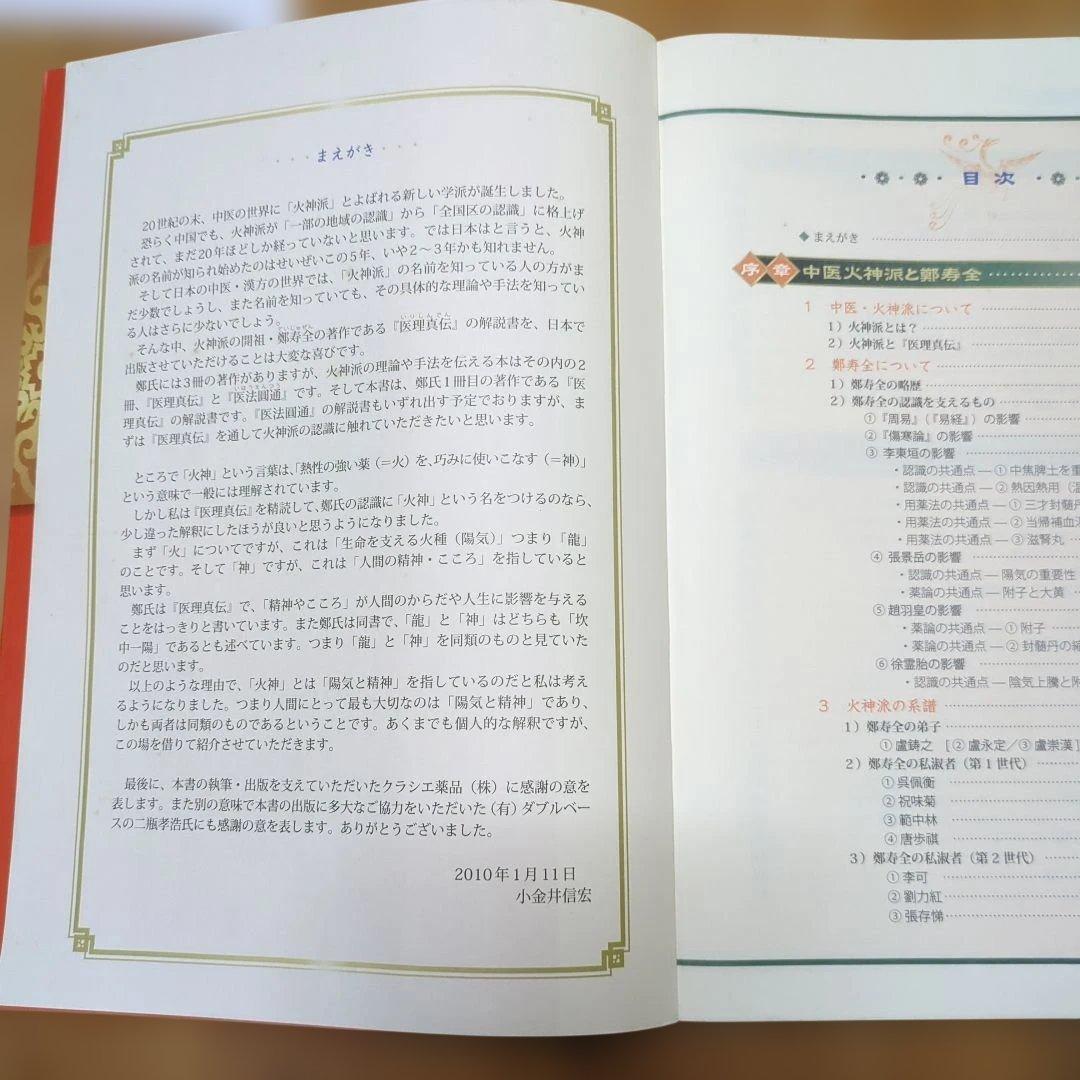 まえがき
20世紀の末、中医の世界に「火神派」とよばれる新しい学派が誕生しました。
恐らく中国でも、火神派が「一部の地域の認識」から「全国区の認識」に格上げ
されて、まだ20年ほどしか経っていないと思います。では日本はと言うと、火神
派の名前が知られ始めたのはせいぜいこの5年、いや2～3年かも知れません。
そして日本の中医・漢方の世界では、「火神派」の名前を知っている人の方がま
だ少数でしょうし、また名前を知っていても、その具体的な理論や手法を知ってい
る人はさらに少ないでしょう。
そんな中、火神派の開祖・鄭寿全の著作である『医理真伝』の解説書を、日本で
出版させていただけることは大変な喜びです。
鄭氏には3冊の著作がありますが、火神派の理論や手法を伝える本はその内の2
冊、『医理真伝』と『医法圓通』です。そして本書は、鄭氏1冊目の著作である『医
理真伝』の解説書です。『医法圓通』の解説書もいずれ出す予定でおりますが、ま
ずは『医理真伝』を通して火神派の認識に触れていただきたいと思います。
ところで「火神」という言葉は、「熱性の強い薬（＝火）を、巧みに使いこなす（＝神）」
という意味で一般には理解されています。
しかし私は『医理真伝』を精読して、鄭氏の認識に「火神」という名をつけるのなら、
少し違った解釈にしたほうが良いと思うようになりました。
まず「火」についてですが、これは「生命を支える火種（陽気）」つまり「龍」
のことです。そして「神」ですが、これは「人間の精神・こころ」を指していると
思います。
鄭氏は『医理真伝』で、「精神やこころ」が人間のからだや人生に影響を与える
ことをはっきりと書いています。また鄭氏は同書で、「龍」と「神」はどちらも「坎
中一陽」であるとも述べています。つまり「龍」と「神」を同類のものと見ていた
のだと思います。
以上のような理由で、「火神」とは「陽気と精神」を指しているのだと私は考え
るようになりました。つまり人間にとって最も大切なのは「陽気と精神」であり、
しかも両者は同類のものであるということです。あくまでも個人的な解釈ですが、
この場を借りて紹介させていただきます。
最後に、本書の執筆・出版を支えていただいたクラシエ薬品（株）に感謝の意を
表します。また別の意味で本書の出版に多大なご協力をいただいた（有）ダブルベー
スの二瓶孝浩氏にも感謝の意を表します。ありがとうございました。
2010年1月11日
小金井信宏
目次
◆ まえがき
序章 中医火神派と鄭寿全
1 中医・火神派について
1）火神派とは？
2）火神派と『医理真伝』
2 鄭寿全について
1）鄭寿全の略歴
2）鄭寿全の認識を支えるもの
①『周易』（『易経』）の影響
②『傷寒論』の影響
③ 李東垣の影響
・認識の共通点 ― ① 中焦脾土を重
・認識の共通点 ― ② 熱因熱用（温
・用薬法の共通点 ― ① 三才封髄丹
・用薬法の共通点 ― ② 当帰補血
・用薬法の共通点 ― ③ 滋腎丸
④ 張景岳の影響
・認識の共通点 ― 陽気の重要性
・薬論の共通点 ― 附子と大黄
⑤ 趙羽皇の影響
・薬論の共通点 ― ① 附子
・薬論の共通点 ― ② 封髄丹の
⑥ 徐霊胎の影響
・認識の共通点 ― 陰気上騰と附
3 火神派の系譜
1）鄭寿全の弟子
① 盧鋳之 [② 盧永定／③ 盧崇漢]
2）鄭寿全の私淑者（第1世代）
① 呉佩衡
② 祝味菊
③ 範中林
④ 唐歩祺
3）鄭寿全の私淑者（第2世代）
① 李可
② 劉力紅
③ 張存悌